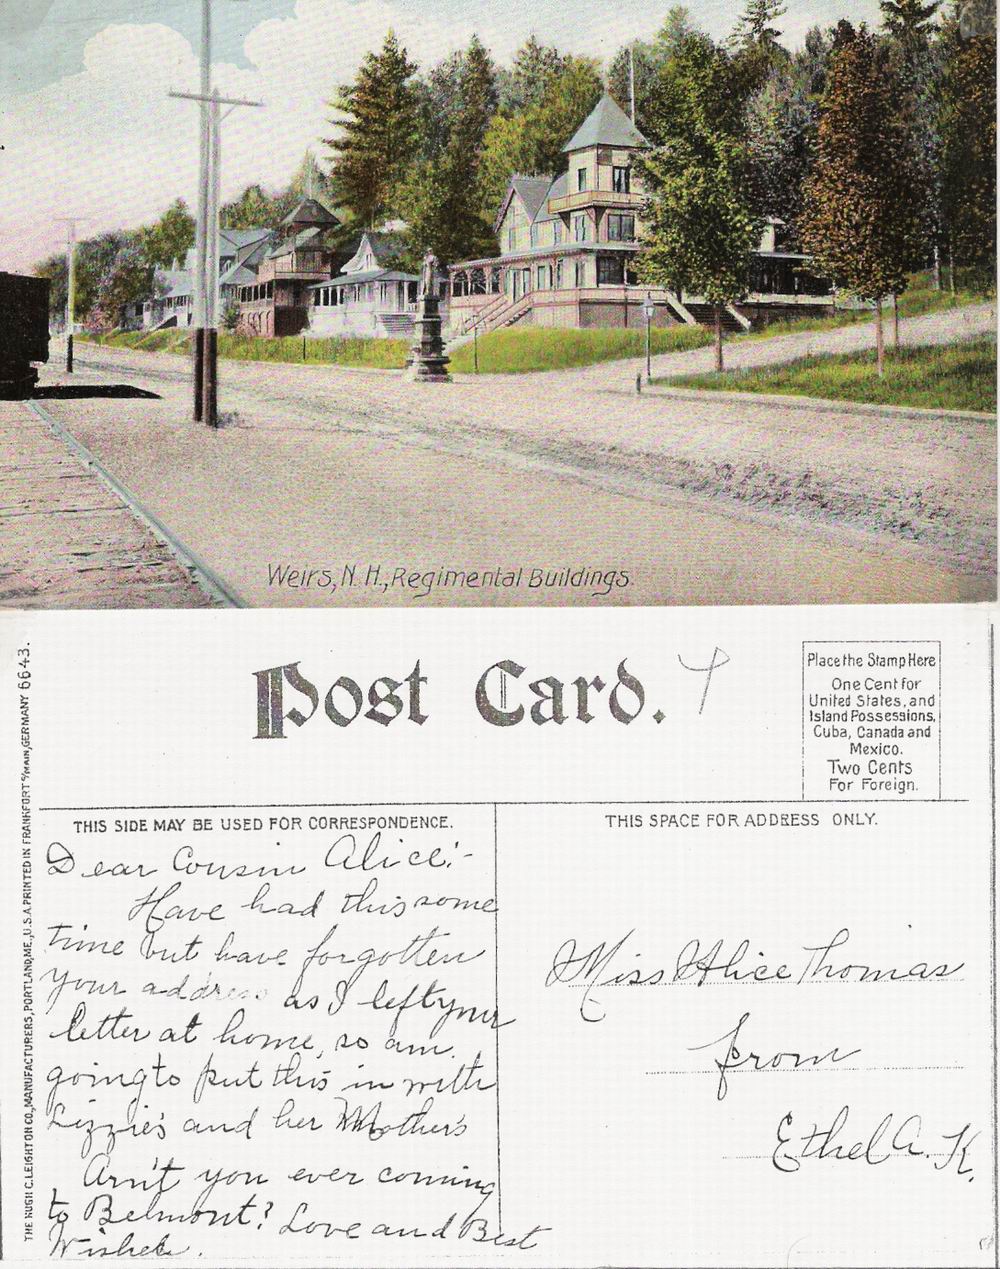 Weirs, N. H., Regimental Buildings.
THE HUGH C. LEIGHTON CO., MANUFACTURERS, PORTLAND, ME., U.S.A. PRINTED IN FRANKFORT o/MAIN, GERMANY 6643.
Post Card.
Place the Stamp Here
One Cent for
United States, and
Island Possessions,
Cuba, Canada and
Mexico.
Two Cents
For Foreign.
THIS SIDE MAY BE USED FOR CORRESPONDENCE.
Dear Cousin Alice:-
Have had this some
time but have forgotten
your address as I left your
letter at home, so am
going to put this in with
Lizzie's and her Mother's
Arn't you ever coming
to Belmont? Love and Best
Wishes.
THIS SPACE FOR ADDRESS ONLY.
Miss Alice Thomas
from
Ethel A. K.